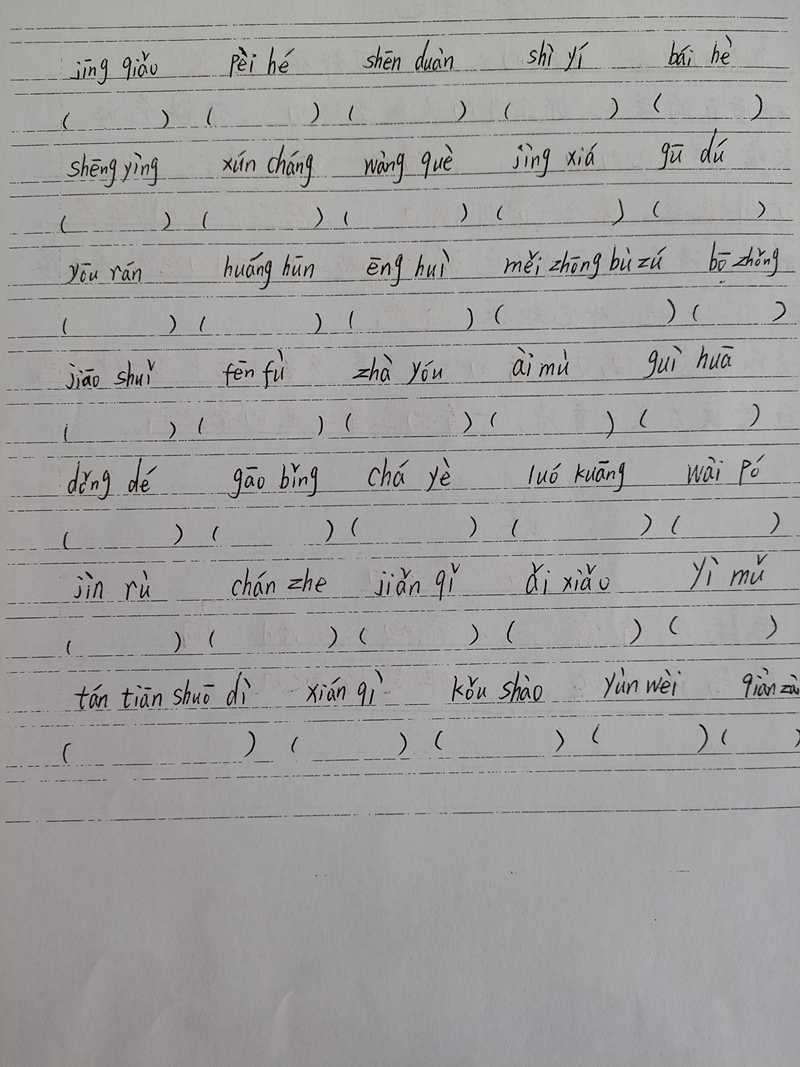 jīng qiǎo pèi hé shēn duàn shì yí bái hè
( ) ( ) ( ) ( ) ( )
shēng yìng xún cháng wàng què jìng xiá gū dú
( ) ( ) ( ) ( ) ( )
yōu rán huáng hūn ēng huì měi zhōng bù zú bō zhǒng
( ) ( ) ( ) ( ) ( )
jiāo shuǐ fēn fù zhà yóu ài mù guì huā
( ) ( ) ( ) ( ) ( )
dǒng dé gāo bǐng chá yè luó kuāng wài pó
( ) ( ) ( ) ( ) ( )
jìn rù chán zhe jiǎn qǐ ǎi xiǎo yì mǔ
( ) ( ) ( ) ( ) ( )
tán tiān shuō dì xián qì kǒu shào yùn wèi qiàn zà
( ) ( ) ( ) ( ) ( )